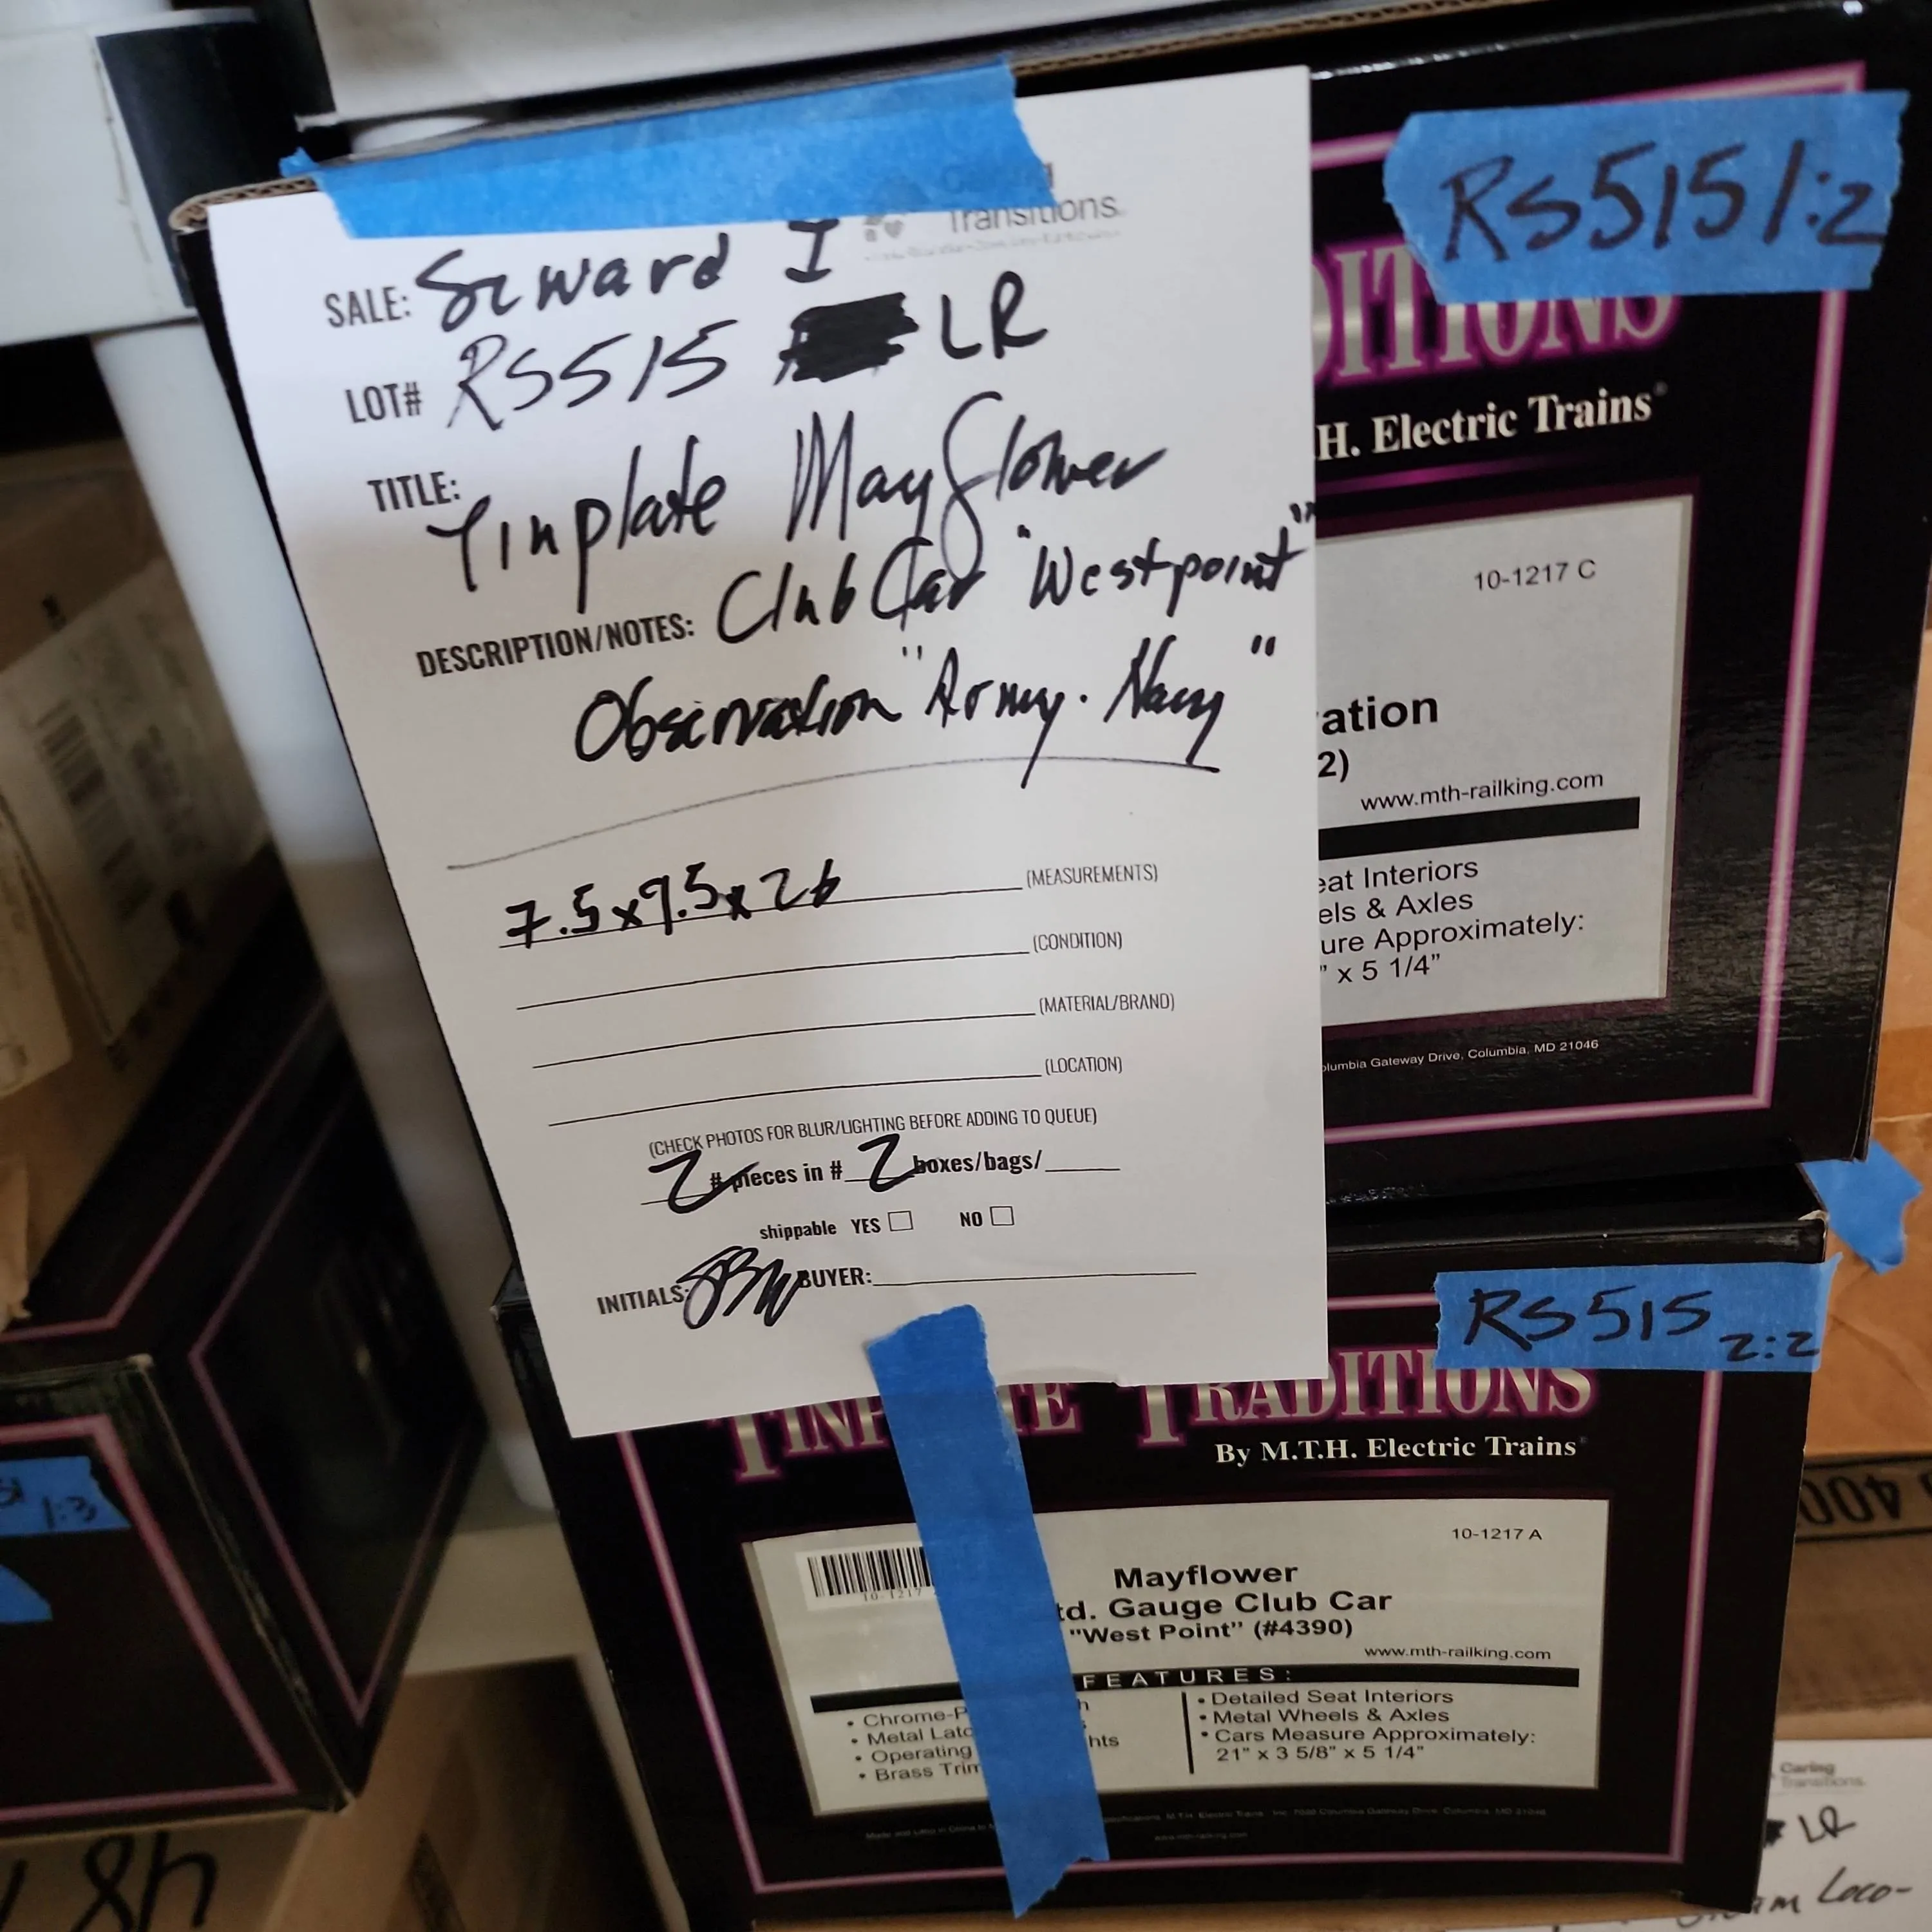 Transitions
SALE: Seward I
LOT# RS515 LR
TITLE: Tinplate Mayflower
DESCRIPTION/NOTES: Club Car "Westpoint"
Observation "Army. Navy"
7.5x9.5x26 (MEASUREMENTS)
(CONDITION)
(MATERIAL/BRAND)
(LOCATION)
(CHECK PHOTOS FOR BLUR/LIGHTING BEFORE ADDING TO QUEUE)
2 # pieces in # 2 boxes/bags/
shippable YES NO
INITIALS: BUYER:
RS515 1:2
DITIONS
.H. Electric Trains
10-1217 C
ation
2)
www.mth-railking.com
eat Interiors
els & Axles
ure Approximately:
" x 5 1/4"
olumbia Gateway Drive, Columbia, MD 21046
RS515 2:2
TINP TE TRADITIONS
By M.T.H. Electric Trains
10-1217 A
10-1217
Mayflower
td. Gauge Club Car
"West Point" (#4390)
www.mth-railking.com
FEATURES:
• Chrome-P h
• Metal Latc s
• Operating hts
• Brass Trim
• Detailed Seat Interiors
• Metal Wheels & Axles
• Cars Measure Approximately:
21" x 3 5/8" x 5 1/4"
1:3
48
400
Caring
Transitions
LR
Loco-